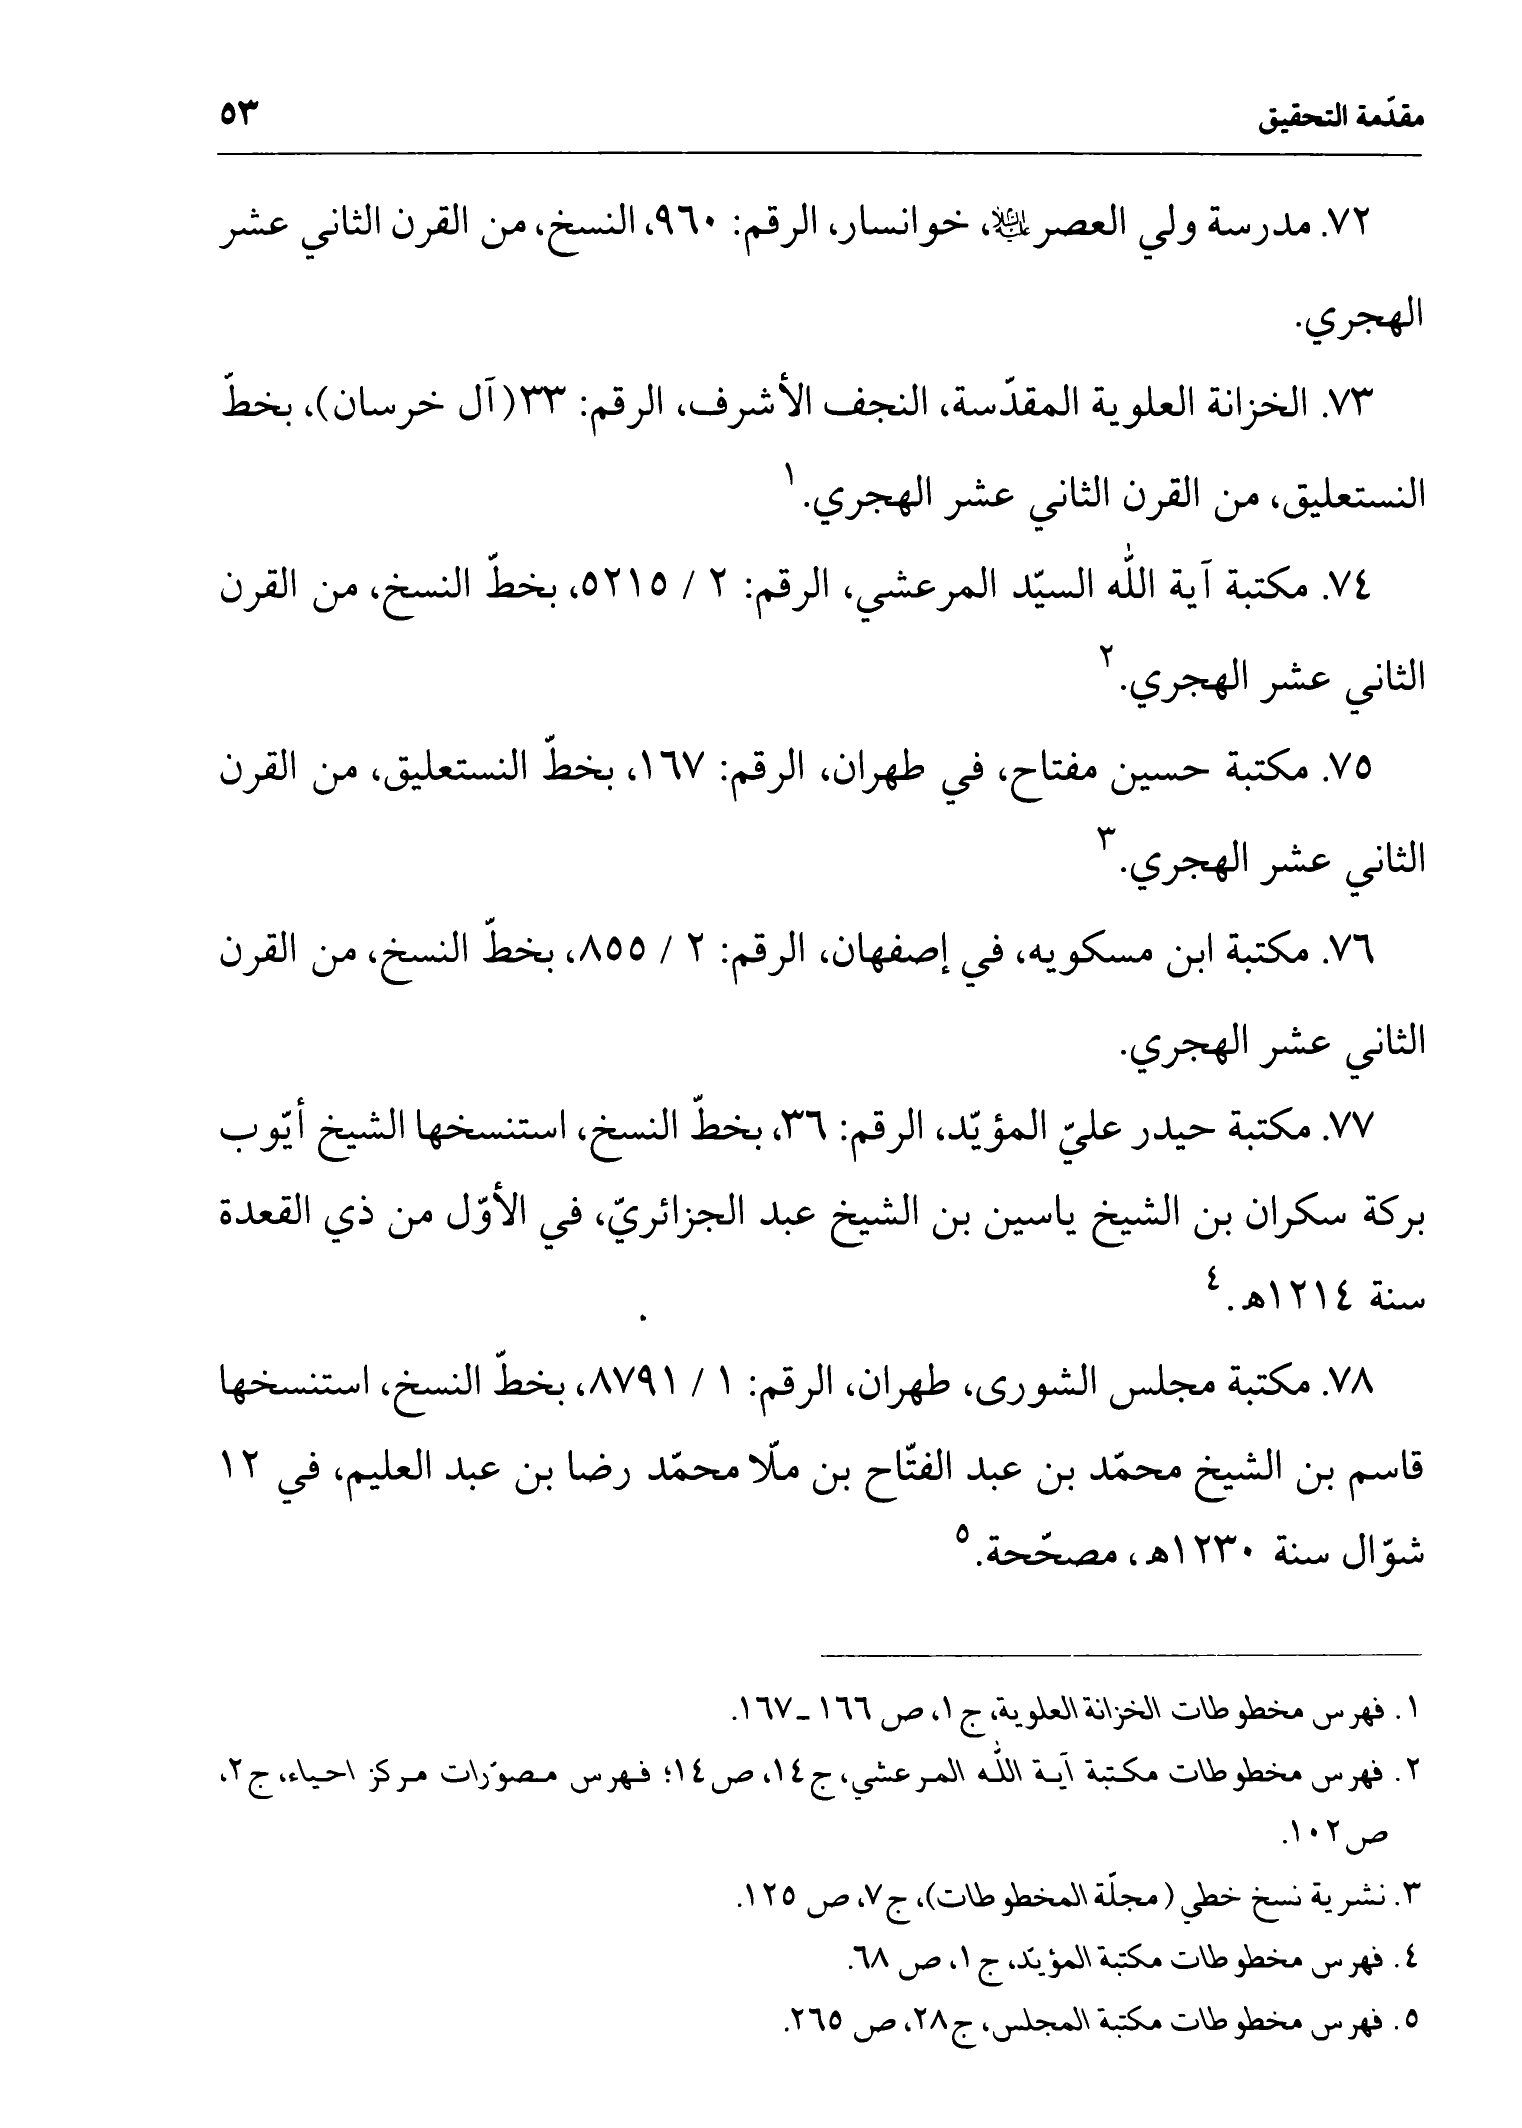 مقدّمة التحقيق ٥٣
٧٢. مدرسة ولي العصر عليه السلام، خوانسار، الرقم: ٩٦٠، النسخ، من القرن الثاني عشر
الهجري.
٧٣. الخزانة العلوية المقدّسة، النجف الأشرف، الرقم: ٣٣(آل خرسان)، بخطّ
النستعليق، من القرن الثاني عشر الهجري.١
٧٤. مكتبة آية الله السيّد المرعشي، الرقم: ٢ / ٥٢١٥، بخطّ النسخ، من القرن
الثاني عشر الهجري.٢
٧٥. مكتبة حسين مفتاح، في طهران، الرقم: ١٦٧، بخطّ النستعليق، من القرن
الثاني عشر الهجري.٣
٧٦. مكتبة ابن مسكويه، في إصفهان، الرقم: ٢ / ٨٥٥، بخطّ النسخ، من القرن
الثاني عشر الهجري.
٧٧. مكتبة حيدر عليّ المؤيّد، الرقم: ٣٦، بخطّ النسخ، استنسخها الشيخ أيّوب
بركة سكران بن الشيخ ياسين بن الشيخ عبد الجزائريّ، في الأوّل من ذي القعدة
سنة ١٢١٤هـ.٤
٧٨. مكتبة مجلس الشورى، طهران، الرقم: ١ / ٨٧٩١، بخطّ النسخ، استنسخها
قاسم بن الشيخ محمّد بن عبد الفتّاح بن ملّا محمّد رضا بن عبد العليم، في ١٢
شوّال سنة ١٢٣٠هـ، مصحّحة.٥
١. فهرس مخطوطات الخزانة العلوية، ج١، ص ١٦٦ ـ ١٦٧.
٢. فهرس مخطوطات مكتبة آية الله المرعشي، ج١٤، ص١٤؛ فهرس مصوّرات مركز احياء، ج٢،
ص١٠٢.
٣. نشرية نسخ خطي (مجلّة المخطوطات)، ج٧، ص ١٢٥.
٤. فهرس مخطوطات مكتبة المؤيّد، ج١، ص ٦٨.
٥. فهرس مخطوطات مكتبة المجلس، ج٢٨، ص ٢٦٥.